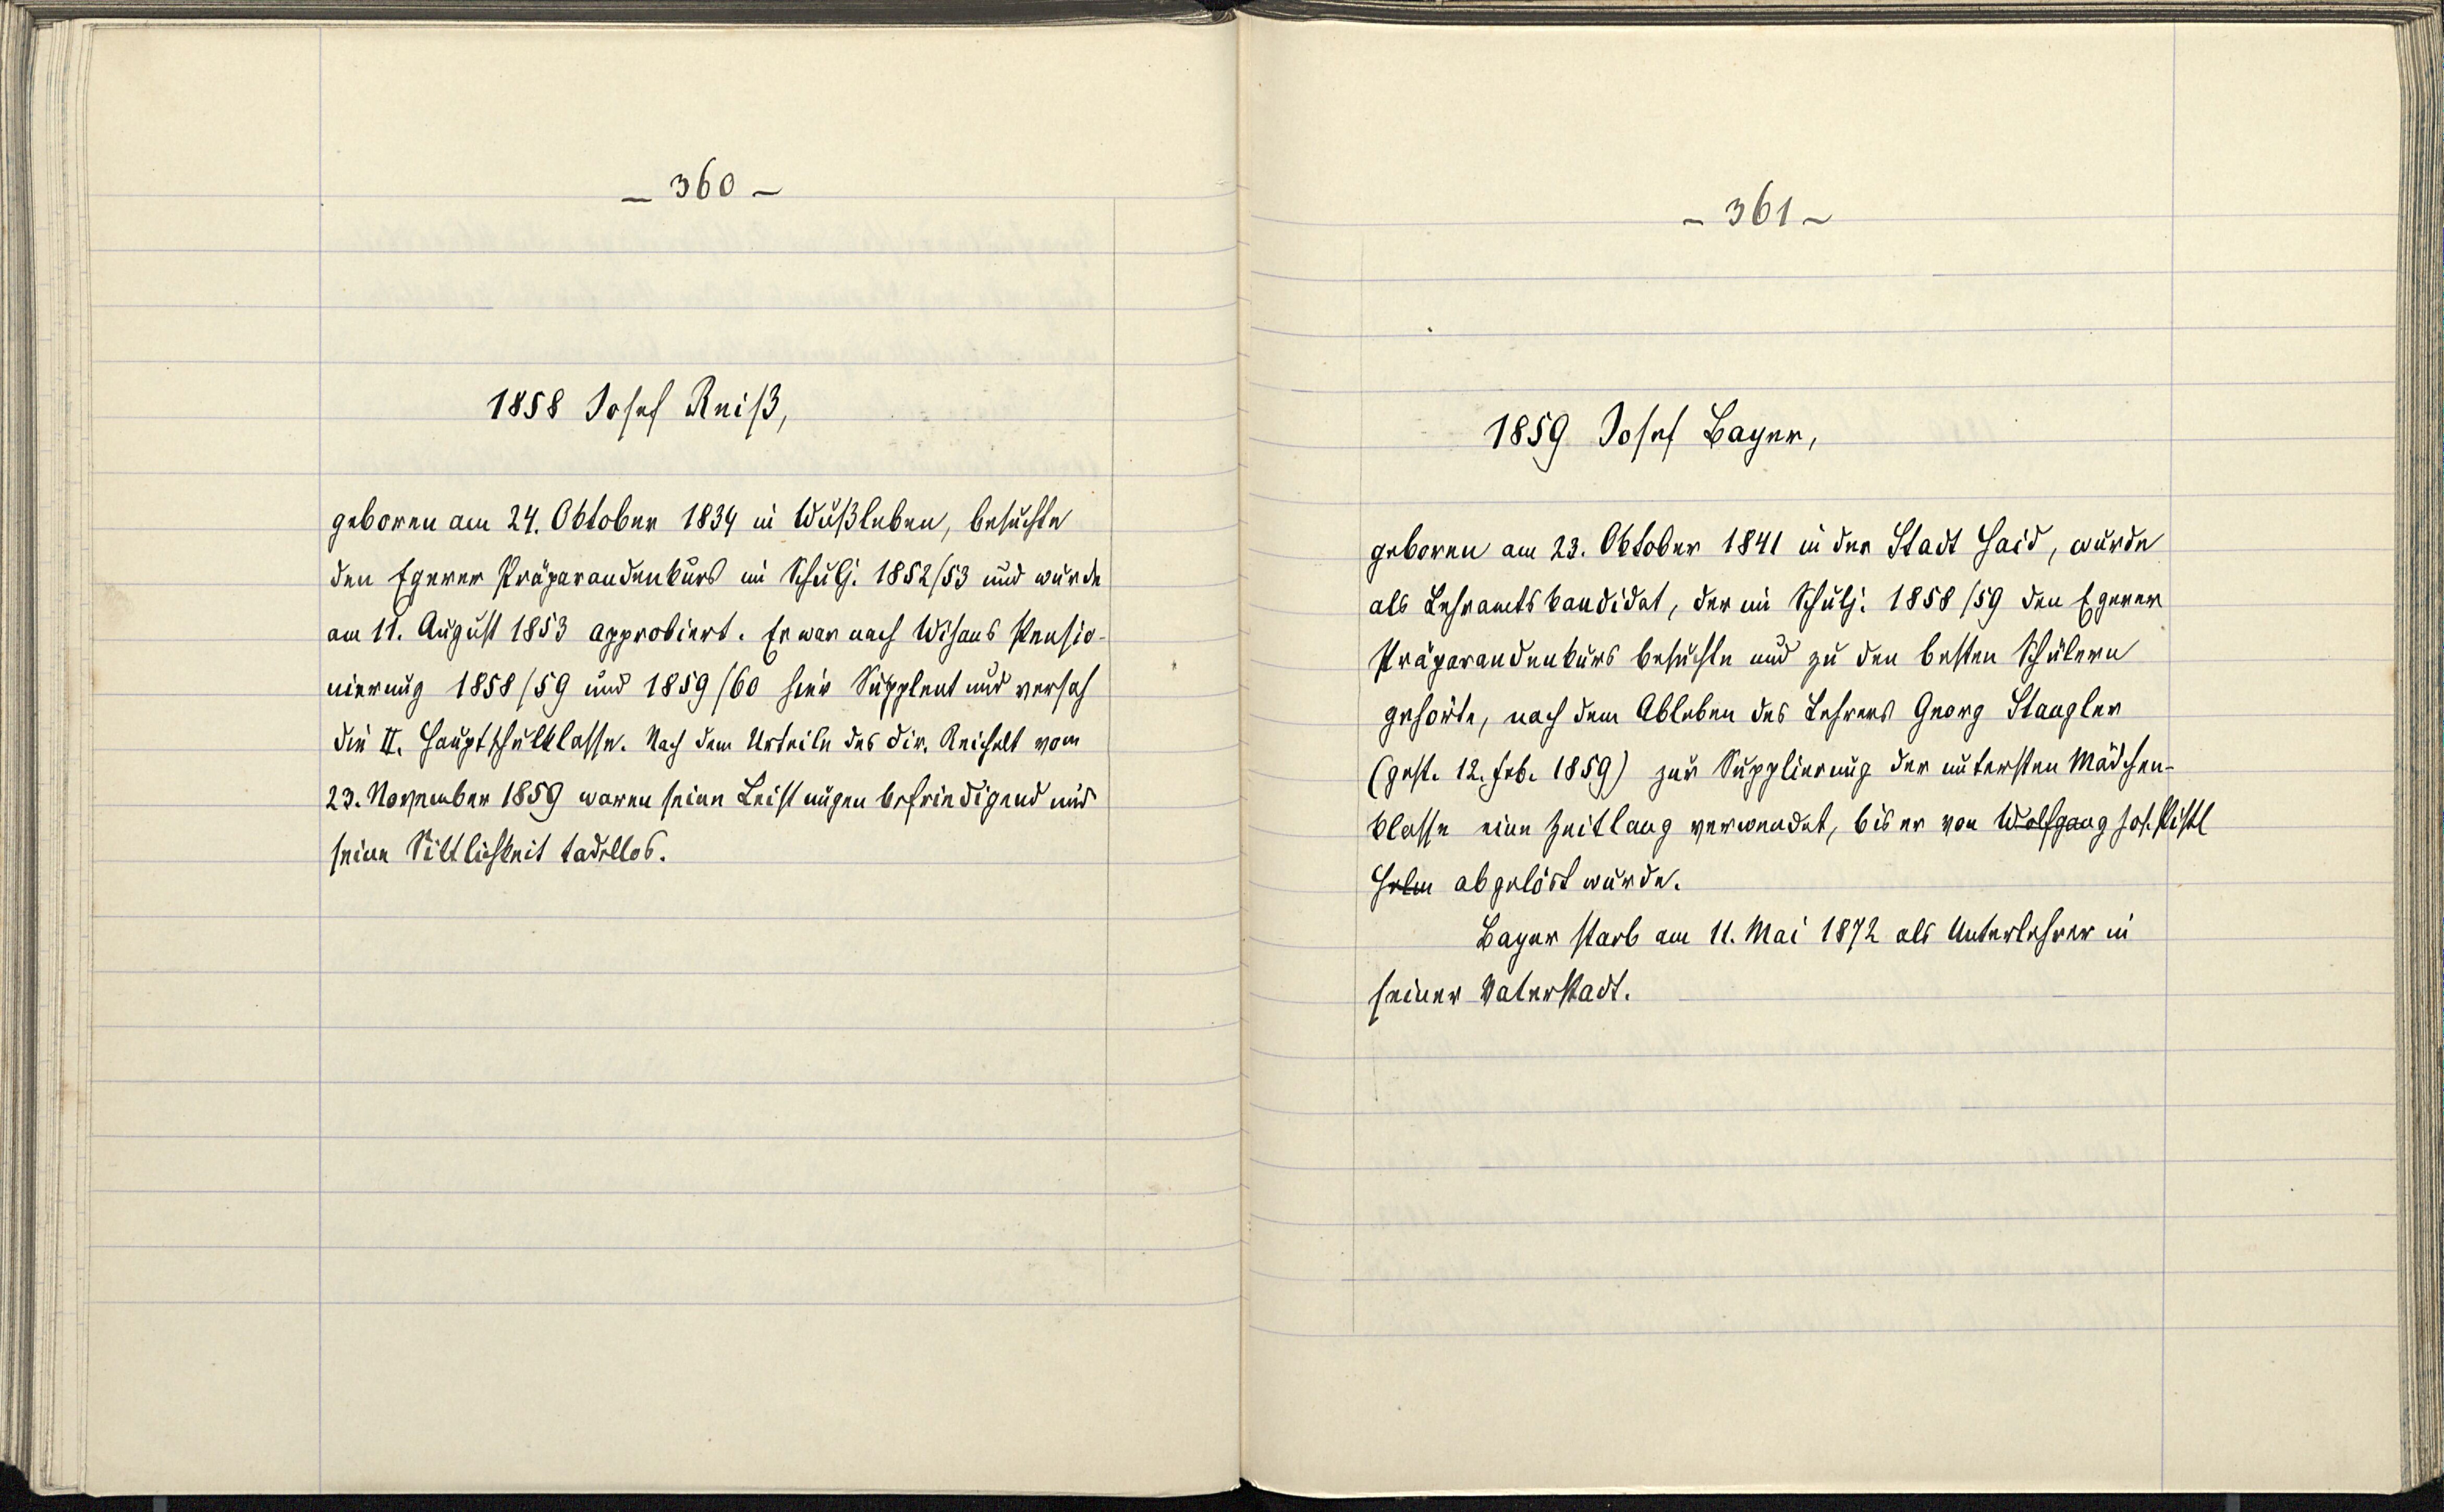 - 360 -
1858 Josef Reiß,
geboren am 24. Oktober 1834 in Wußleben, besuchte
den Egerer Präparandenkurs im Schulj. 1852/53 und wurde
am 11. August 1853 approbiert. Er war nach Wihans Pensio-
nierung 1858/59 und 1859/60 hier Supplent und versah
die II. Hauptschulklasse. Nach dem Urteile des Dir. Reichelt vom
23. November 1859 waren seine Leistungen befriedigend und
seine Sittlichkeit tadellos.
- 361 -
1859 Josef Bayer,
geboren am 23. Oktober 1841 in der Stadt Haid, wurde
als Lehramtskandidat, der im Schulj. 1858/59 den Egerer
Präparandenkurs besuchte und zu den besten Schülern
gehörte, nach dem Ableben des Lehrers Georg Stangler
(gest. 12. Feb. 1859) zur Supplierung der untersten Mädchen-
klasse eine Zeitlang verwendet, bis er von Wolfgang Jos. Pistl
Helm abgelöst wurde.
Bayer starb am 11. Mai 1872 als Unterlehrer in
seiner Vaterstadt.